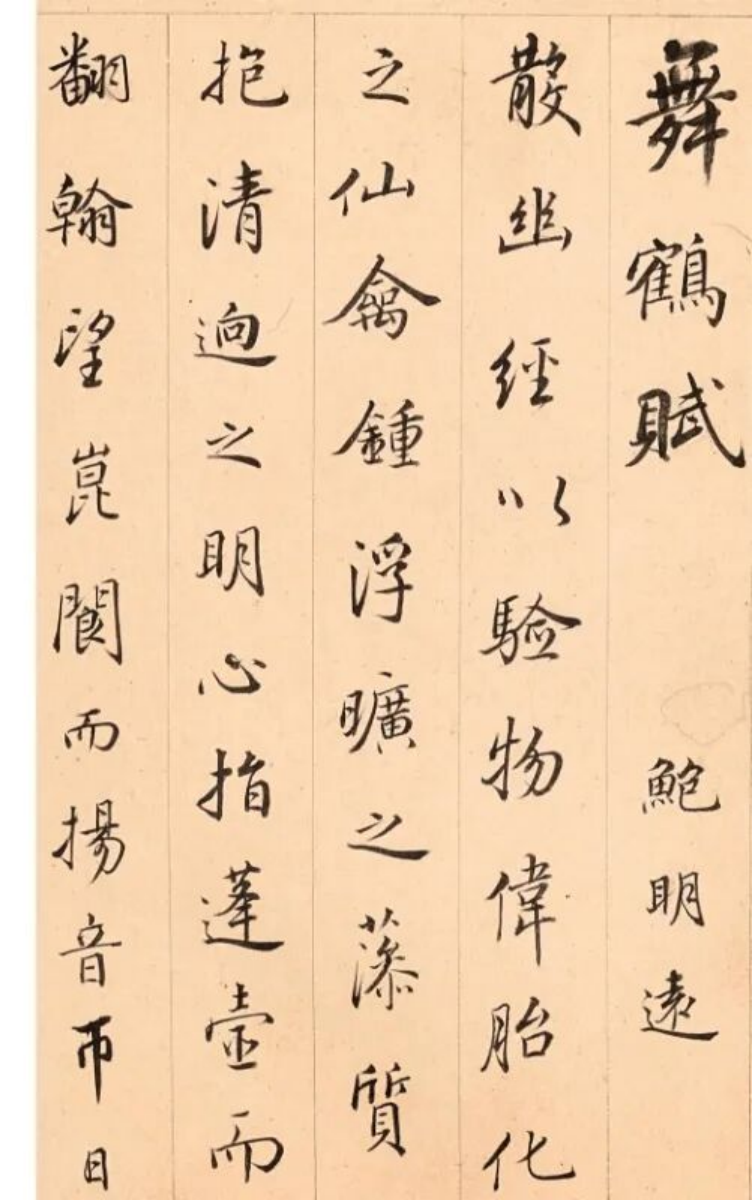 舞鶴賦 鮑明遠
散幽經以驗物偉胎化
之仙禽鍾浮曠之藻質
抱清迥之明心指蓬壺而
翻翰望崑閬而揚音帀日